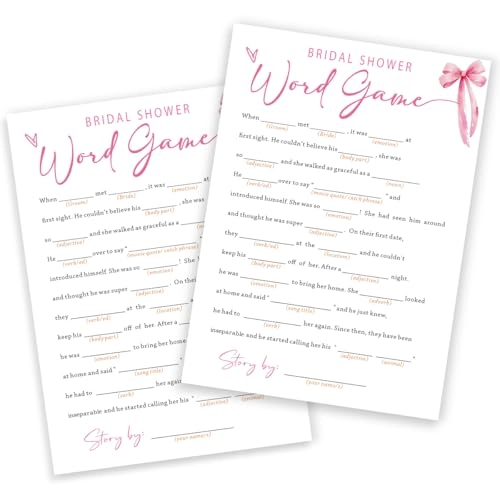 BRIDAL SHOWER
Word Game
When ________ met ________, it was ________ at
(Groom) (Bride) (emotion)
first sight. He couldn't believe his ________, she was
(body part)
so ________ and she walked as graceful as a ________.
(adjective) (emotion)
He ________ over to say "________________" and
(verb/ed) (movie quote/ catch phrase)
introduced himself. She was so ________! She had seen him around
(emotion)
and thought he was super ________. On their first date,
(adjective)
they ________ at the ________ and he couldn't
(verb/ed) (location)
keep his ________ off of her. After a ________ night,
(body part) (adjective)
he was ________ to bring her home. She ________ looked
(emotion) (adverb)
at home and said "________" and he just knew,
(song title)
he had to ________ her again. Since then, they have been
(verb)
inseparable and he started calling her his "________ ________"
(adjective) (animal)
Story by: ________________
(your name/s)
BRIDAL SHOWER
Word Game
When ________ met ________, it was ________
(Groom) (Bride) (emotion)
first sight. He couldn't believe his ________
(body part)
so ________ and she walked as graceful as a
(adjective)
He ________ over to say "________
(verb/ed) (movie quote/ catch phrase)
introduced himself. She was so ________! She
(emotion)
and thought he was super ________. On their
(adjective)
they ________ at the ________
(verb/ed) (location)
keep his ________ off of her. After a
(body part)
he was ________ to bring her home.
(emotion)
at home and said "________"
(song title)
he had to ________ her again.
(verb)
inseparable and he started calling her his "________
(adjective)
Story by: ________________
(your name/s)